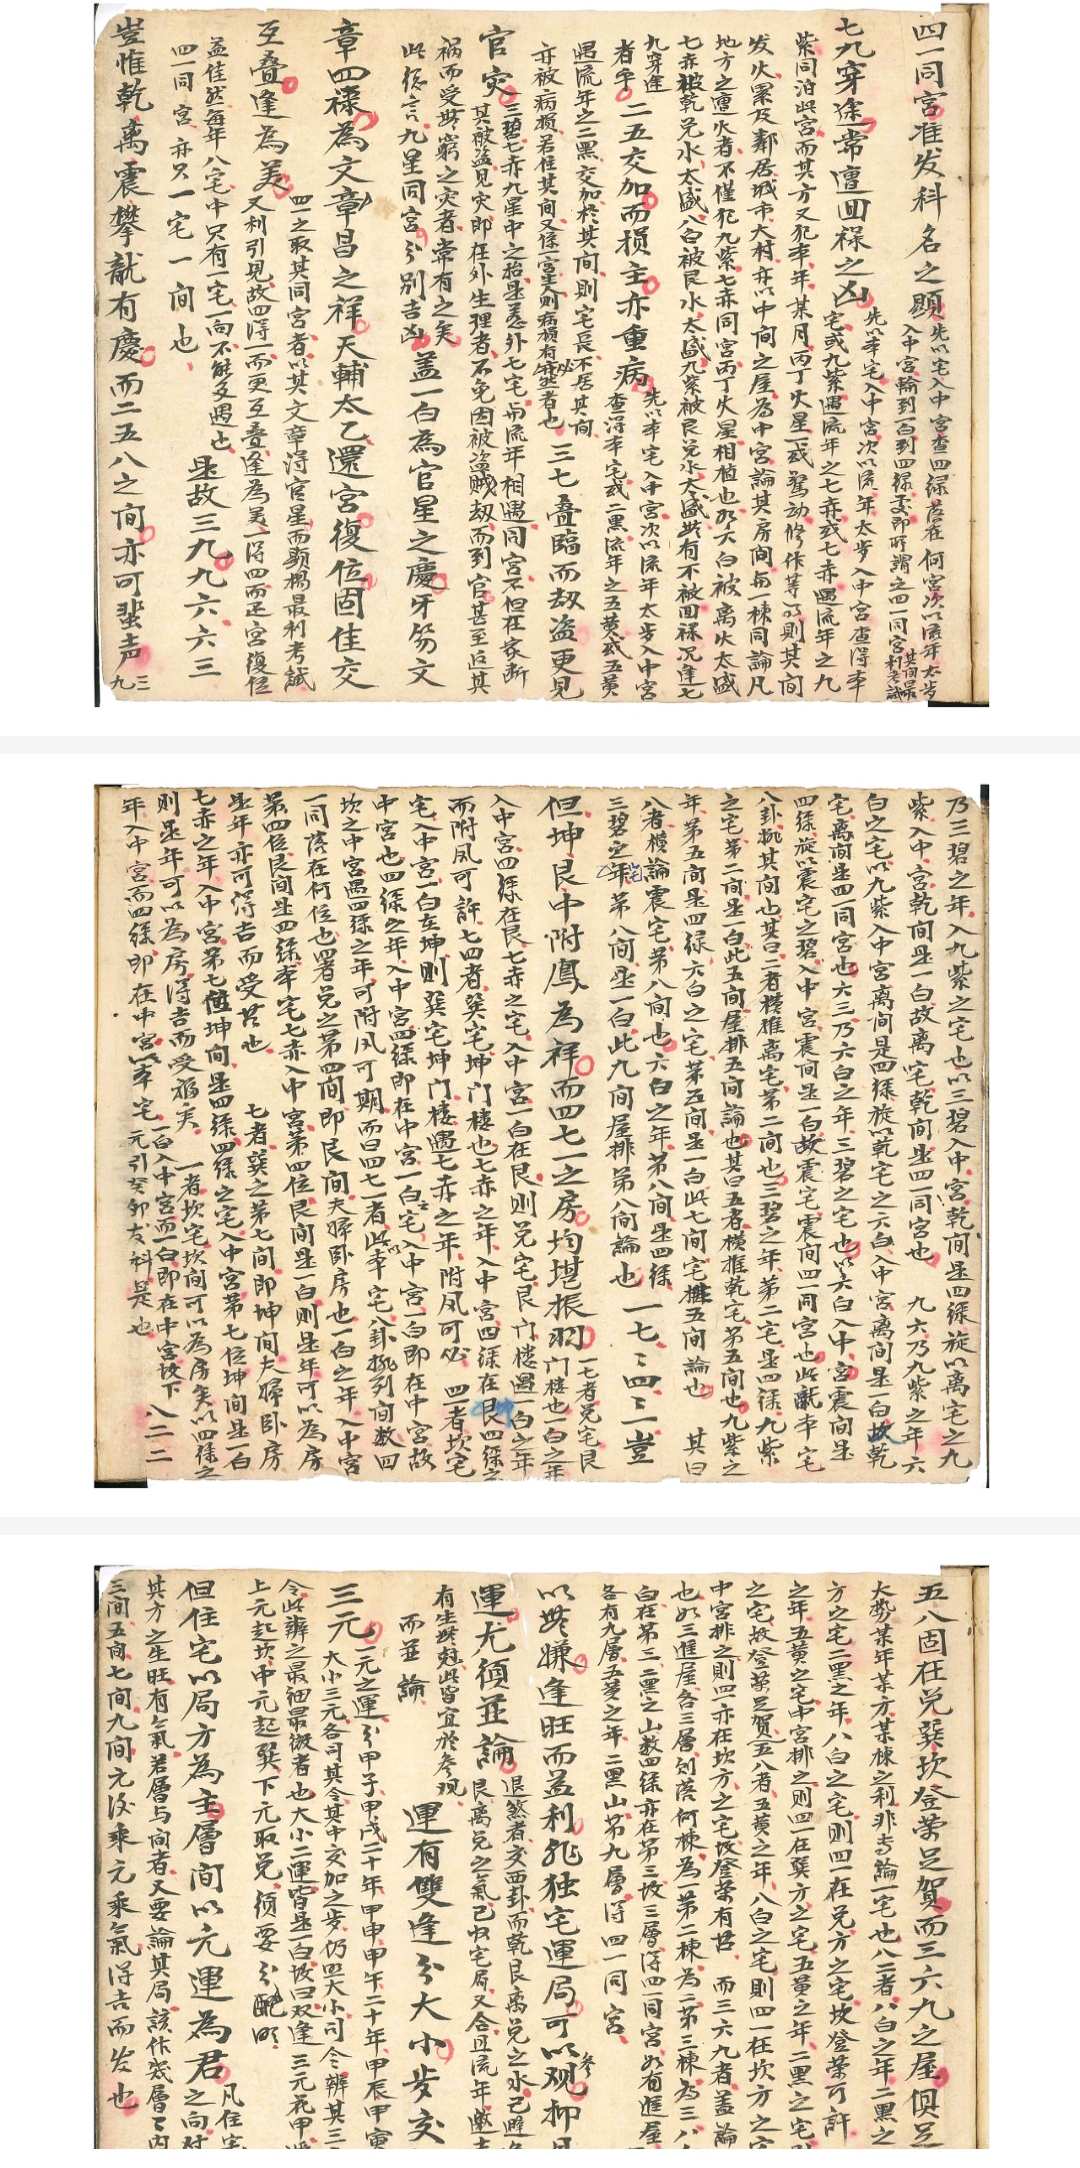 四一同宮准发科名之顯先以宅入中宮查四绿落在何宮次以流年太步
入中宮輪到一白到四绿要即所謂之四一同宮其间最利考試
七九穿途常遭回禄之凶先以本宅入中宮次以流年太步入中宮查得本
宅或九紫遇流年之七赤或七赤遇流年之九
紫同泊此宮而其方又犯本年某月丙丁火星或驚动修作等以則其间
发火累及鄰居城市大村亦以中间之屋為中宮論其房间每一棟同論凡
地方之遭火者不僅犯九紫七赤同宮丙丁火星相植也以六白被离火太盛
七赤被乾兑水太盛八白被艮水太盛九紫被艮兑水太盛此有不被回禄况逢七
九穿途
者乎二五交加而损主亦重病先以本宅入中宮次以流年太步入中宮
查得本宅或二黑流年之五黄或五黄
遇流年之二黑交加於其间則宅長不居其间
亦被病损若住其间又係一宮夫則病损有必然者也三七叠臨而劫盗更見
官灾三碧七赤九星中之殆星悉外七宅而流年相遇同宮不但在家断
其被盗見灾即在外生理者不免因被盗贼劫而到官甚至近其
祸而受牢窮之灾者常有之矣
此後言九星同宮分别吉凶蓋一白為官星之慶牙笏文
章四禄為文章昌之祥天輔太乙還宮復位固佳交
互叠逢為美四一之取其同宮者以其文章得官星而顯揚最利考試
又利引見故四得一而更互叠逢為美一得四而还宮復位
益佳然每年八宅中只有一宅一向不能多遇也
四一同宮亦只一宅一间也是故三九九六六三
豈惟乾离震攀龍有慶而二五八之间亦可蜚声三九
乃三碧之年入九紫之宅也以三碧入中宮乾间是四绿旋以离宅之九
紫入中宮乾间是一白故离宅乾间是四一同宮也九六乃九紫之年六
白之宅以九紫入中宮离间是四绿旋以乾宅之六白入中宮离间是一白故乾
宅离间是四一同宮也六三乃六白之年三碧之宅也以六白入中宮震间是
四绿旋以震宅之碧入中宮震间是一白故震宅震间四一同宮也此亂本宅
八卦挑其间也其曰二者横推离宅第二间也三碧之年第二宅是四绿九紫
之宅第二间是一白此五间屋排五间論也其曰五者横推乾宅第五间也九紫之
年第五间是四绿六白之宅第五间是一白此七间宅推五间論也其曰
八者横論震宅第八间也六白之年第八间是四绿
三碧之宅第八间是一白此九间屋排第八间論也一七二四二一豈
但坤艮中附鳳為祥而四七一之房均堪振羽一七者兑宅艮
门楼也一白之年
入中宮四绿在艮七赤之宅入中宮一白在艮則兑宅艮门楼遇一白之年
而附凤可許七四者巽宅坤门楼也七赤之年入中宮四绿在坤四绿之
宅入中宮一白在坤則巽宅坤门楼遇七赤之年附凤可必四者坎宅
中宮也四绿之年入中宮四绿即在中宮一白宅入中宮一白即在中宮故
坎之中宮遇四绿之年可附凤可期而曰四七一者此本宅八卦挑列间数四
一同落在何位也四者兑之第四间即艮间夫婦卧房也一白之年入中宮
第四位艮间是四绿本宅七赤入中宮第四位艮间是一白則是年可以為房
是年亦可得吉而受喆也七者巽之第七间即坤间夫婦卧房
七赤之年入中宮第七位坤间是四绿四绿之宅入中宮第七位坤间是一白
則是年可以為房得吉而受福矣一者坎宅坎间可以為房矣以四绿之
年入中宮而四绿即在中宮以本宅一白入中宮而一白即在中宮坎下
元引癸卯发科是也八二二
五八固在兑巽坎登荣足賀而三六九之屋俱足
大勢某年某方某棟之利非专論一宅也八二者八白之年二黑之
方之宅二黑之年八白之宅則四一在兑方之宅坎登荣可許
之年五黄之宅中宮排之則四一在巽方之宅五黄之年二黑之宅
之宅故登荣足賀五八者五黄之年八白之宅則四一在坎方之宅
中宮排之則四一亦在坎方之宅坎登荣有喆而三六九者盖論
也如三進屋各三層則落何棟為一第二棟為二第三棟為三
白在第三二黑之山数四绿亦在第三坡三層得四一同宮如有進屋
各有九層五黄之年二黑山第九層得四一同宮
以此嫌逢旺而益利非独宅運局可以参观抑且
運尤須並論退煞者交两卦而乾艮离兑之水己避
艮离兑之氣己收宅局又合且流年邀吉
有生此冠此皆宜於参观
而並論運有雙逢分大小步交
三元一元之運分甲子甲戌二十年甲申甲午二十年甲辰甲寅
大小三元各司其令其中交加之步仍四大小司令辨其三
令此辨之最细最微者也大小二運皆是一白坡曰双逢三元花甲
上元起坎中元起巽下元取兑須要分配明
但住宅以局方為主層间以元運為君凡住宅
之向財
其方之生旺有氣若層与间者又要論其局該作幾層
三间五间七间九间元後乘元乘氣得吉而发也